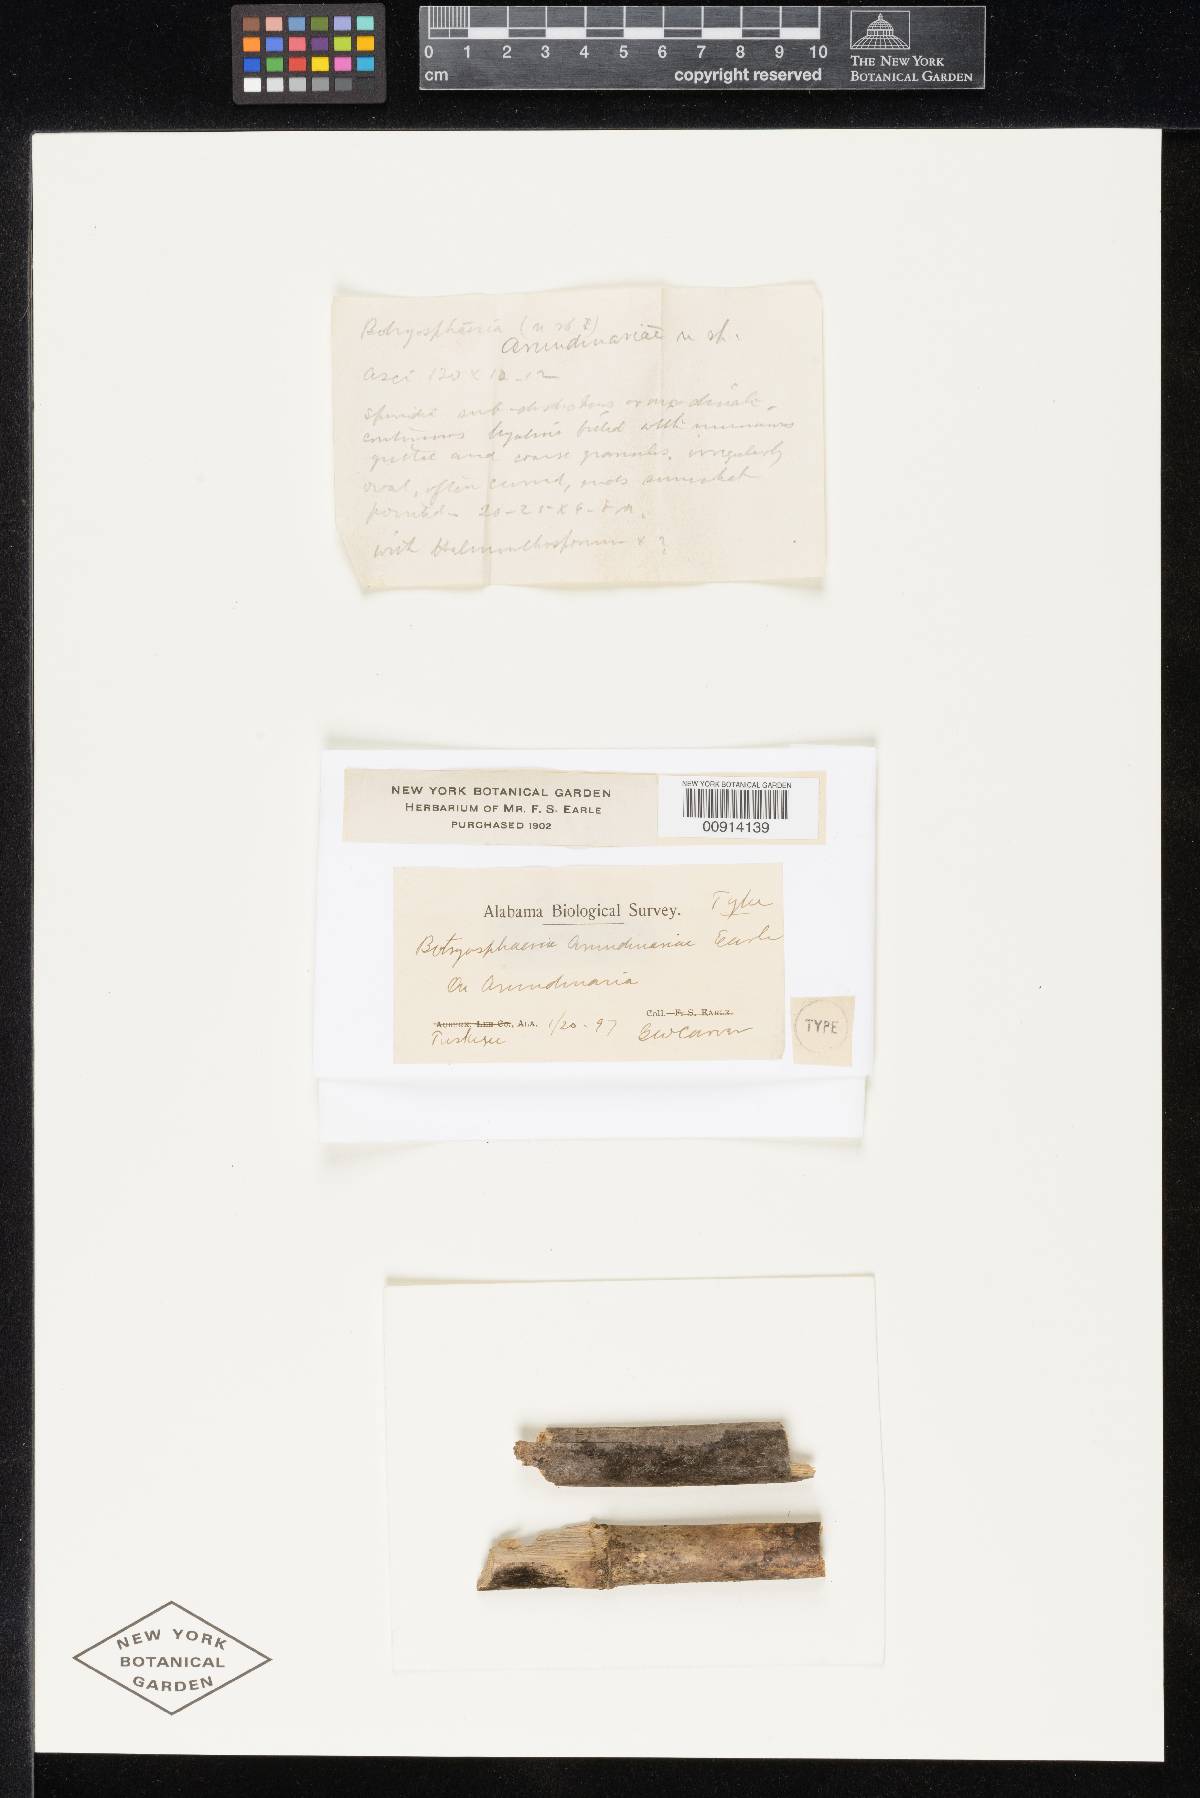 0 1 2 3 4 5 6 7 8 9 10
cm
copyright reserved
THE NEW YORK
BOTANICAL GARDEN
Botryosphaeria (n sb
Arundinariae n sp.
Asci 120 x 10-12
continuous hyaline filled with numerous
guttae and coarse granules, irregularly
oval, often curved, ends somewhat
pointed - 20-25 x 6-8 μ.
with Helminthosporium x ?
NEW YORK BOTANICAL GARDEN
HERBARIUM OF MR. F. S. EARLE
PURCHASED 1902
NEW YORK BOTANICAL GARDEN
00914139
Alabama Biological Survey.
Type
Botryosphaeria Arundinariae Earle
On Arundinaria
Coll.—F. S. EARLE.
AUBURN, LEE CO., ALA. 1/20-97
Tuskegee
GWCarver
TYPE
NEW YORK
BOTANICAL
GARDEN